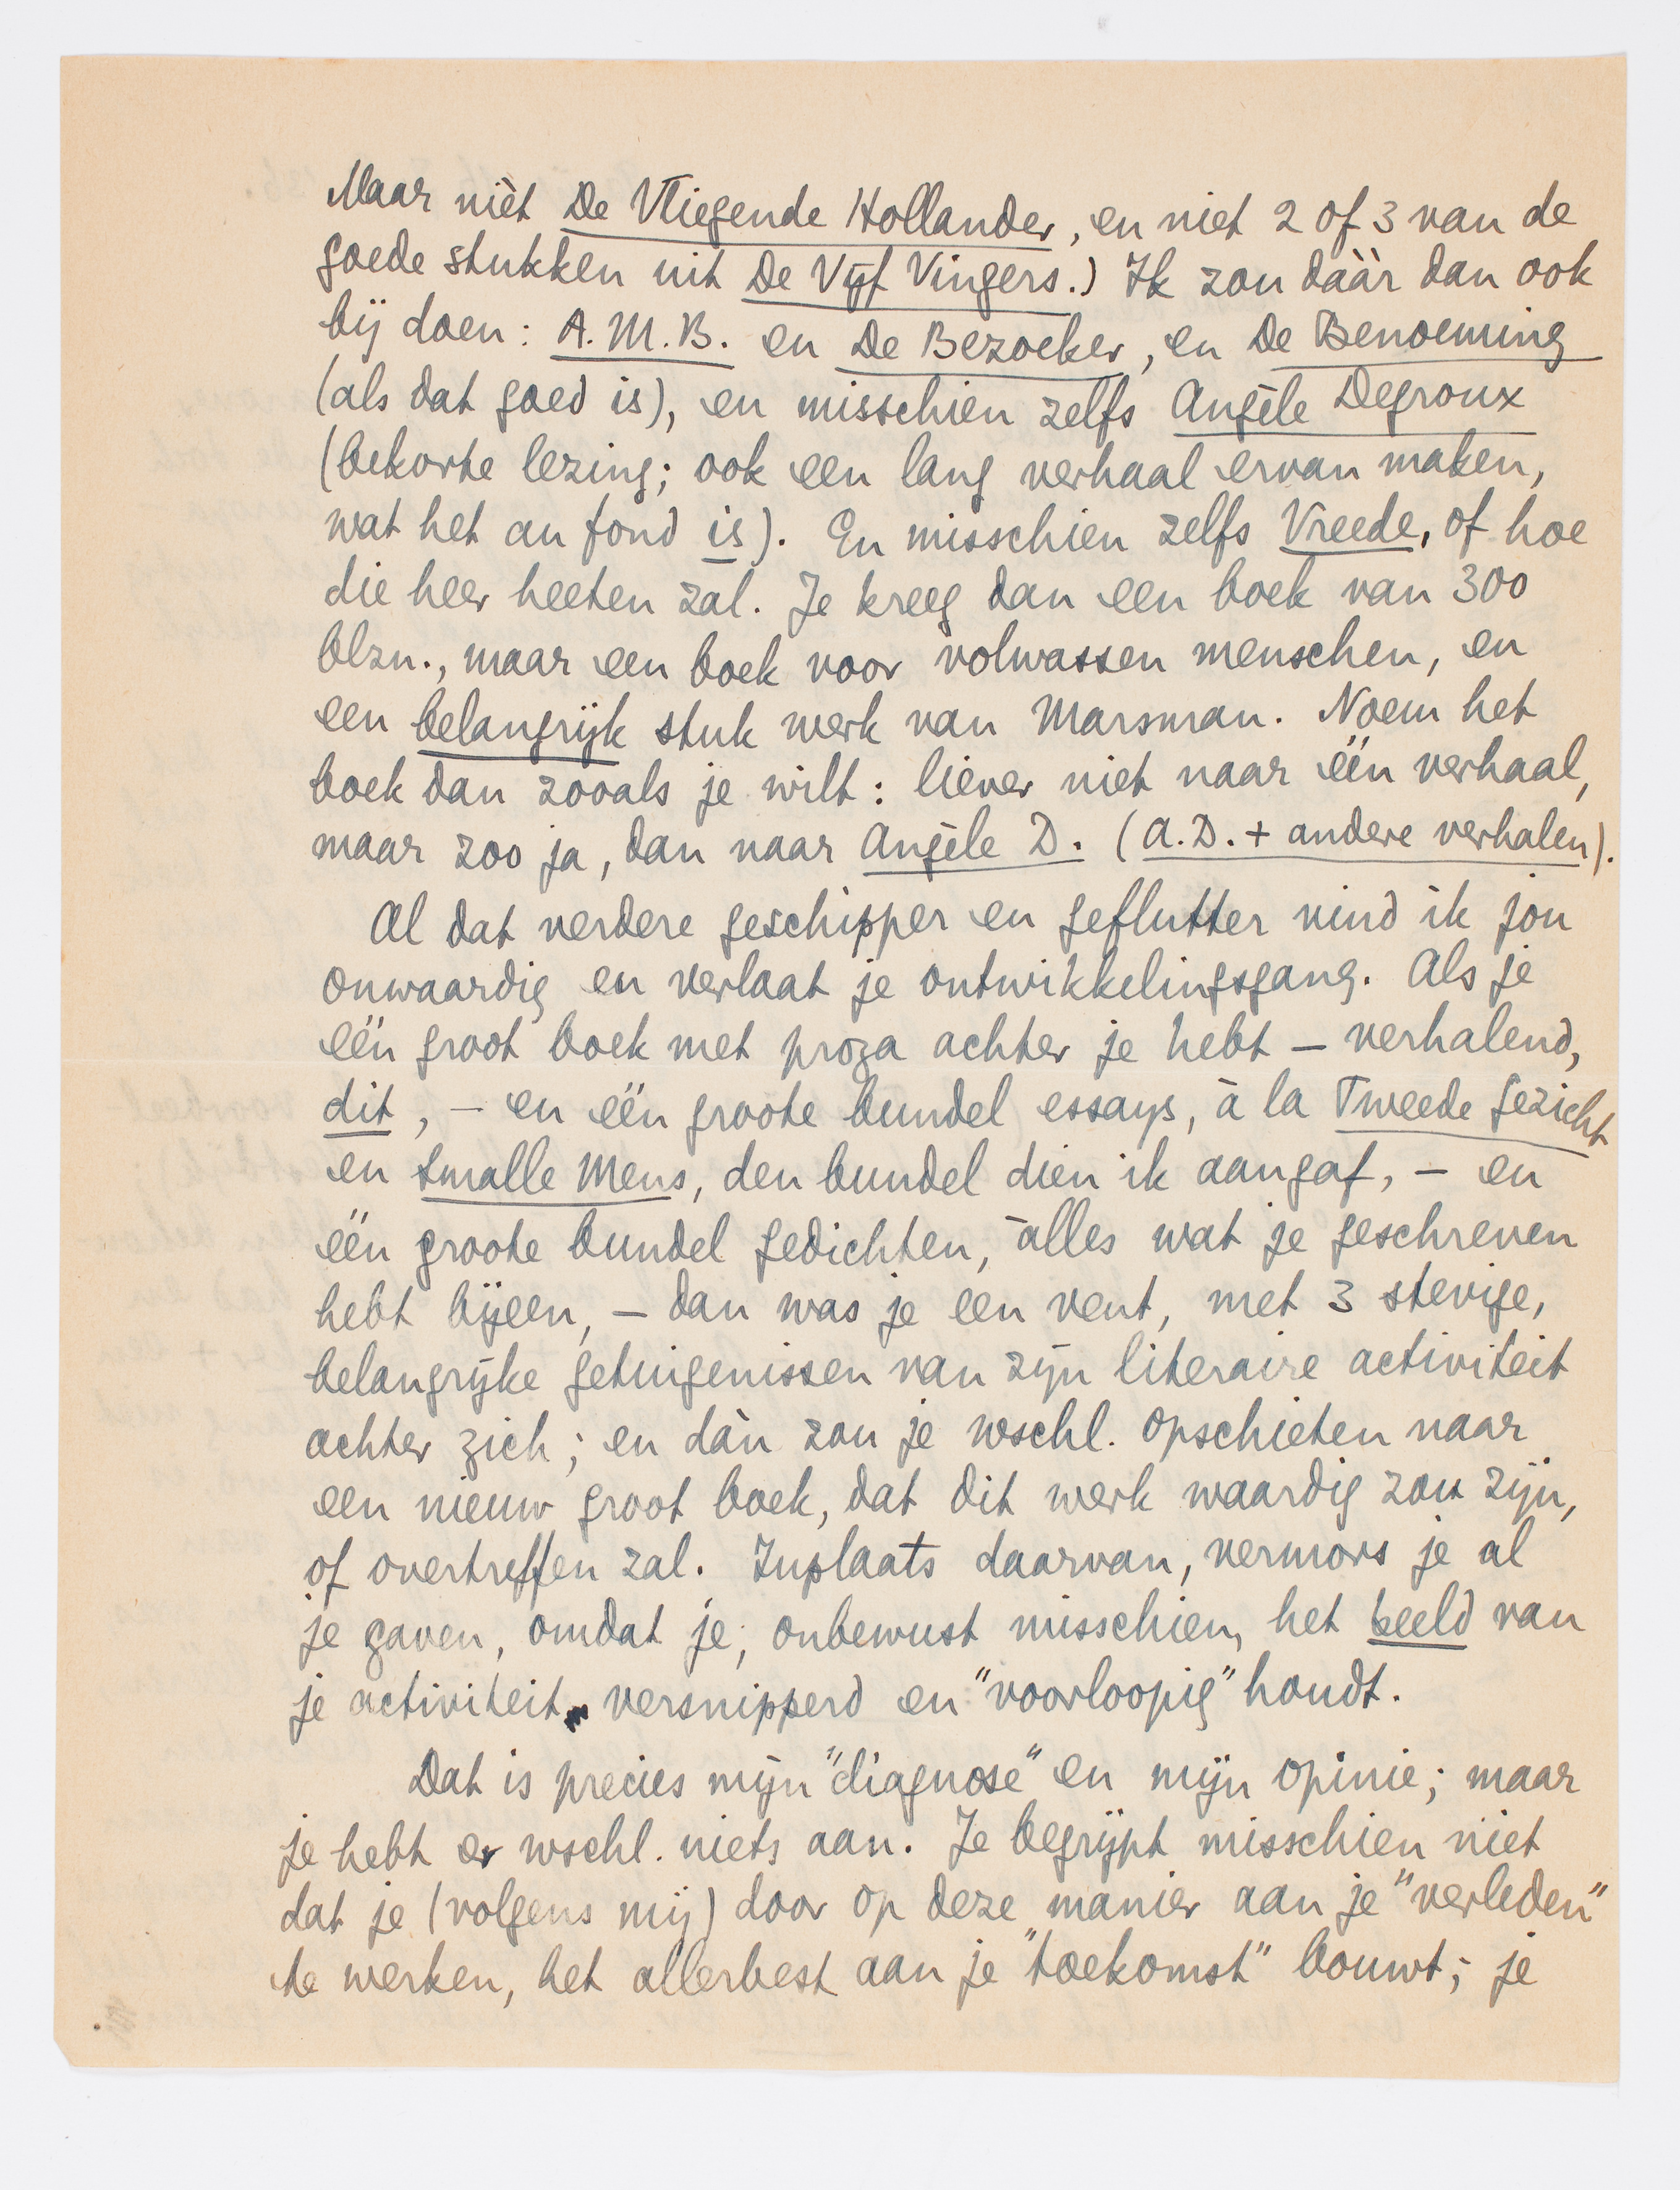 Maar nièt De Vliegende Hollander, en niet 2 of 3 van de
goede stukken uit De Vijf Vingers.) Ik zou dààr dan ook
bij doen: A.M.B. en De Bezoeker, en De Benoeming
(als dat goed is), en misschien zelfs Angèle Degroux
(bekorte lezing; ook een lang verhaal ervan maken,
wat het au fond is). En misschien zelfs Vreede, of hoe
die heer heeten zal. Je kreeg dan een boek van 300
blzn., maar een boek voor volwassen menschen, en
een belangrijk stuk werk van Marsman. Noem het
boek dan zooals je wilt: liever niet naar één verhaal,
maar zoo ja, dan naar Angèle D. (A.D. + andere verhalen).
Al dat verdere geschipper en geflutter vind ik jou
onwaardig en verlaat je ontwikkelingsgang. Als je
één groot boek met proza achter je hebt – verhalend,
dit, – en één groote bundel essays, à la Tweede Gezicht
en Smalle Mens, den bundel dien ik aangaf, – en
één groote bundel gedichten, àlles wat je geschreven
hebt bijeen, – dan was je een vent, met 3 stevige,
belangrijke getuigenissen van zijn literaire activiteit
achter zich; en dàn zou je wschl. opschieten naar
een nieuw groot boek, dat dit werk waardig zou zijn,
of overtreffen zal. Inplaats daarvan, vermors je al
je gaven, omdat je, onbewust misschien, het beeld van
je activiteit versnipperd en "voorloopig" houdt.
Dat is precies mijn "diagnose" en mijn opinie; maar
je hebt er wschl. niets aan. Je begrijpt misschien niet
dat je (volgens mij) door op deze manier aan je "verleden"
te werken, het allerbest aan je "toekomst" bouwt; je